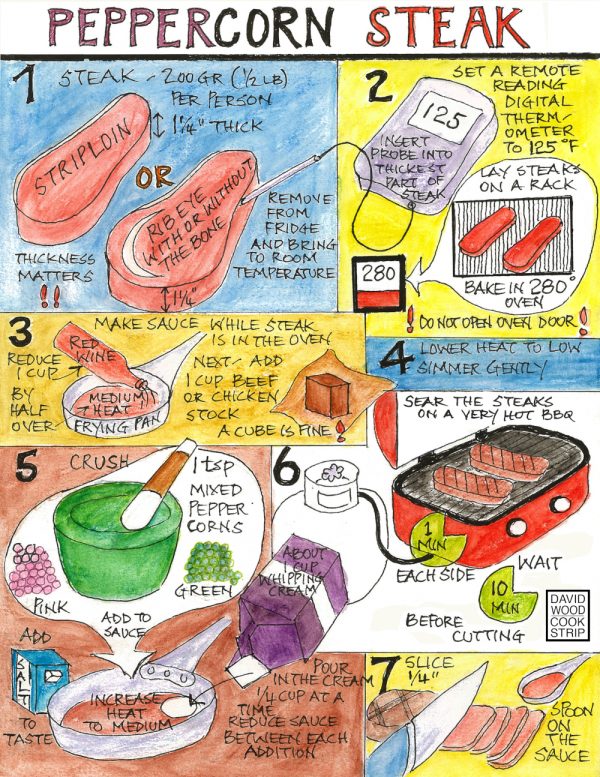 PEPPERCORN STEAK
1
STEAK - 200 GR (1/2 LB)
PER PERSON
1 1/4" THICK
STRIPLOIN
OR
RIB EYE
WITH OR WITHOUT
THE BONE
1 1/4"
THICKNESS
MATTERS
!!
REMOVE
FROM
FRIDGE
AND BRING
TO ROOM
TEMPERATURE
2
SET A REMOTE
READING
DIGITAL
THERM-
OMETER
TO 125°F
125
INSERT
PROBE INTO
THICKEST
PART OF
STEAK
LAY STEAKS
ON A RACK
280
BAKE IN 280°
OVEN
! DO NOT OPEN OVEN DOOR !
3
MAKE SAUCE WHILE STEAK
IS IN THE OVEN
RED
WINE
REDUCE
1 CUP
BY
HALF
OVER
MEDIUM
HEAT
FRYING PAN
NEXT - ADD
1 CUP BEEF
OR CHICKEN
STOCK
A CUBE IS FINE !
4
LOWER HEAT TO LOW
SIMMER GENTLY
5
CRUSH
1 tsp
MIXED
PEPPER
CORNS
PINK
GREEN
ADD TO
SAUCE
ADD
SALT
TO
TASTE
INCREASE
HEAT
TO MEDIUM
ABOUT
1 CUP
WHIPPING
CREAM
POUR
IN THE CREAM
1/4 CUP AT A
TIME
REDUCE SAUCE
BETWEEN EACH
ADDITION
6
SEAR THE STEAKS
ON A VERY HOT BBQ
1
MIN
EACH SIDE
WAIT
10
MIN
BEFORE
CUTTING
DAVID
WOOD
COOK
STRIP
7
SLICE
1/4"
SPOON
ON
THE
SAUCE